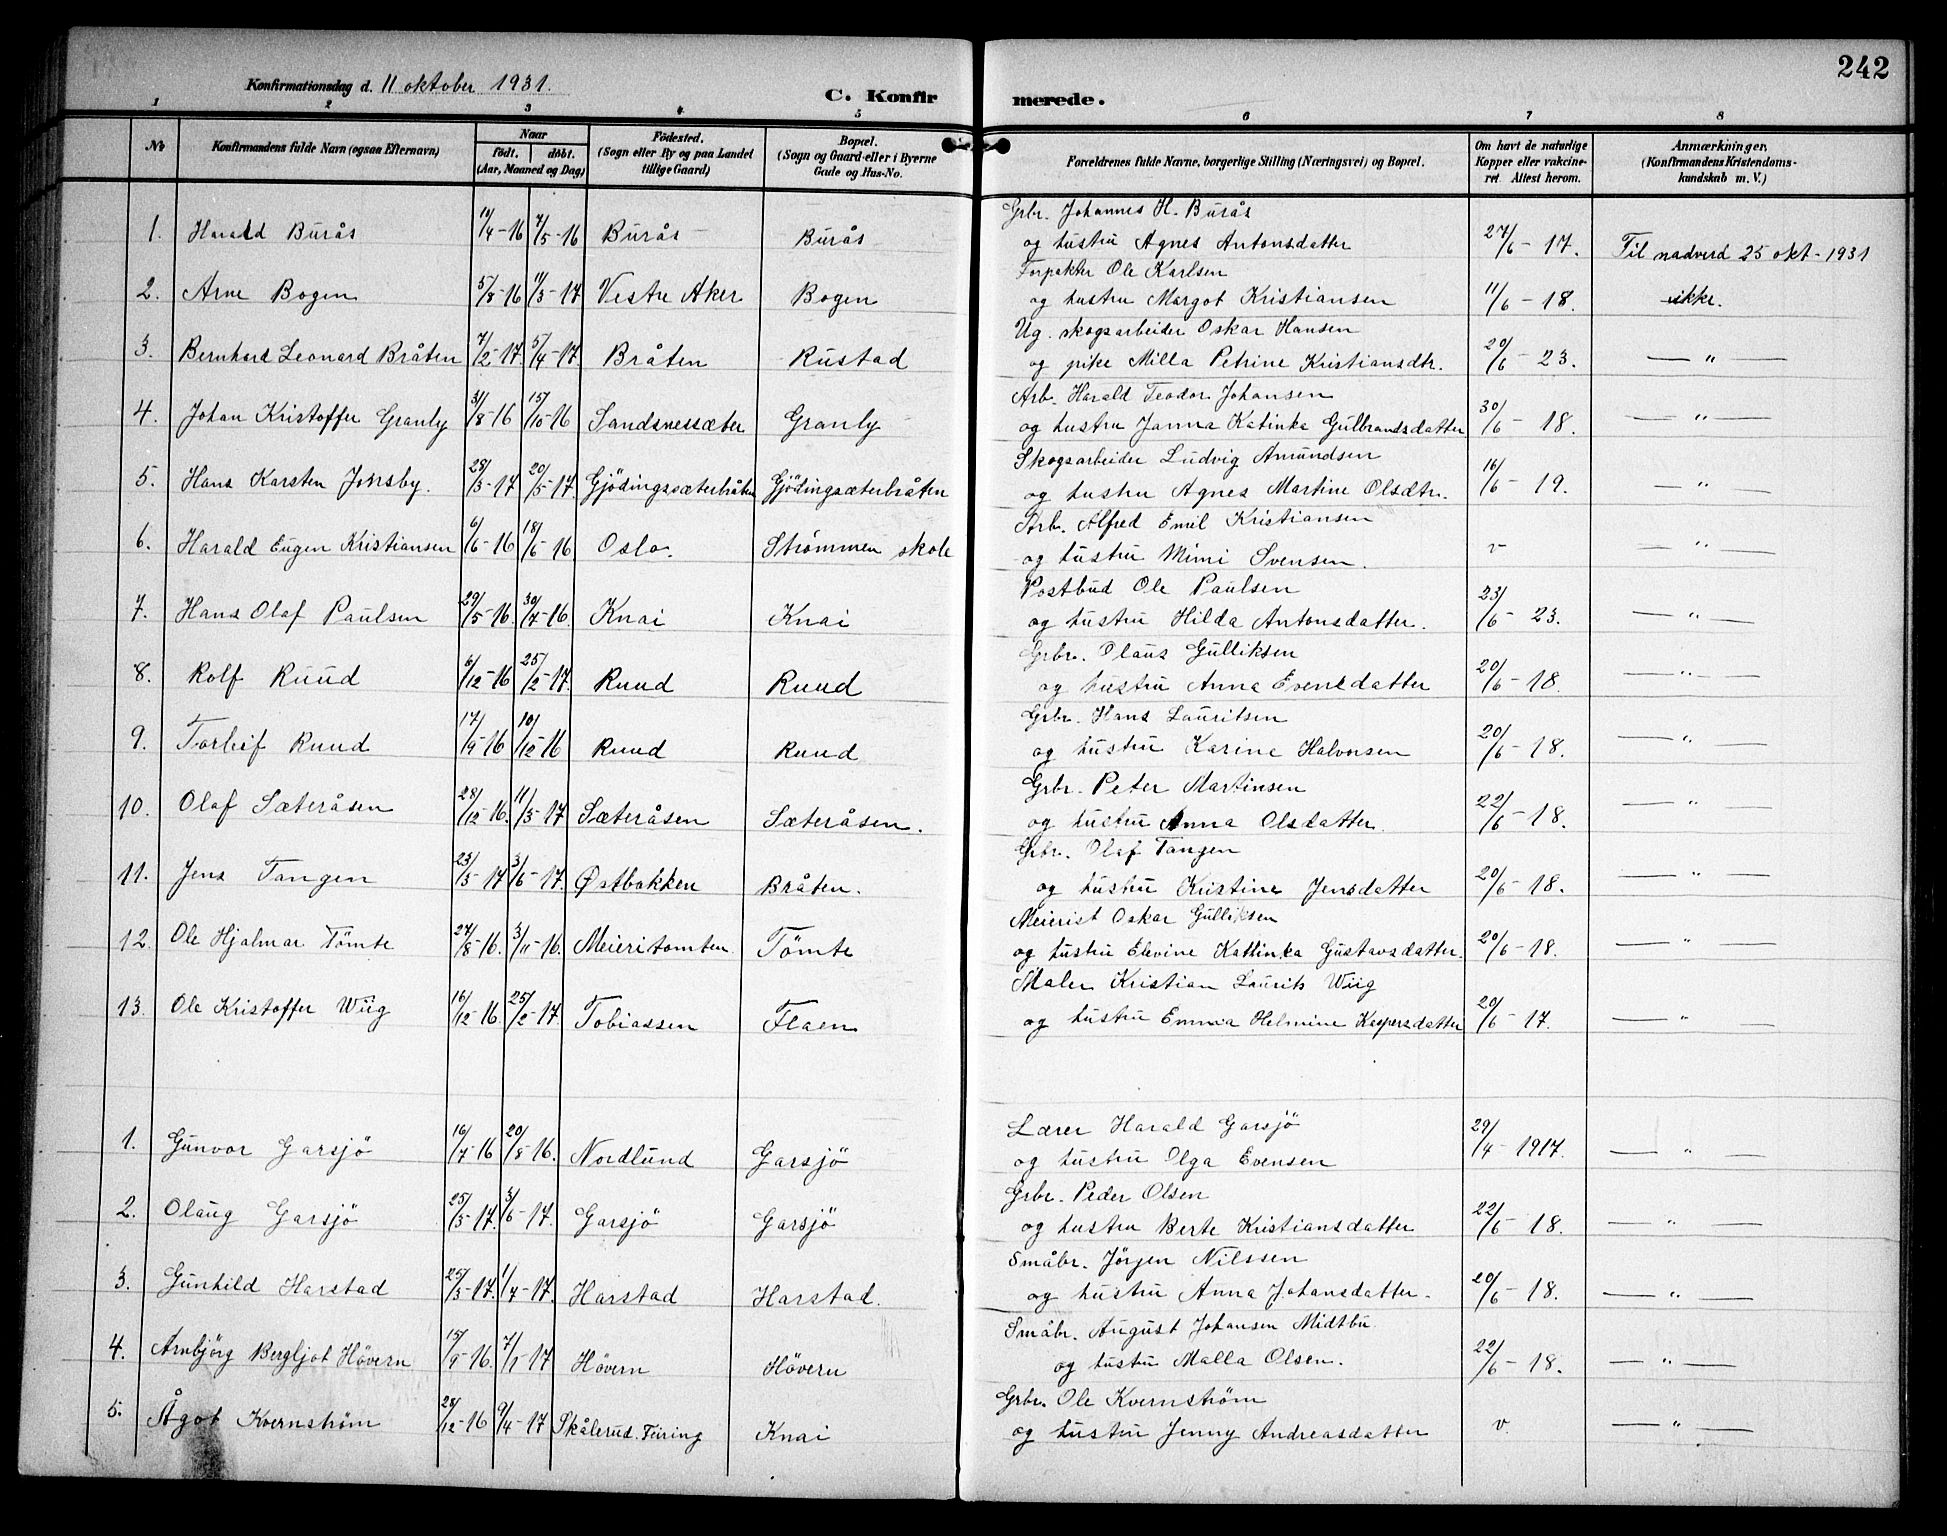 242
Konfirmationsdag d. 11 oktober 1931.
C. Konfirmerede.
1 2 3 4 5 6 7 8
No
Konfirmandens fulde Navn (ogsaa Efternavn)
Naar
födt. döbt.
(Aar, Maaned og Dag)
Födested.
(Sogn eller By og paa Landet
tillige Gaard)
Bopæl.
(Sogn og Gaard eller i Byerne
Gade og Hus-No.
Forældrenes fulde Navne, borgerlige Stilling (Næringsvei) og Bopæl.
Om havt de naturlige
Kopper eller vakcine-
ret Attest herom.
Anmærkninger.
(Konfirmandens Kristendoms-
kundskab m. V.)
Grbr. Johannes H. Burås
1. Harald Burås 10/4-16 7/5-16 Burås Burås og hustru Agnes Antonsdatter 27/6-17. Til nadverd 25 okt-1931
Forpakter Ole Karlsen
2. Arne Bogen 5/8-16 11/3-17 Vestre Aker Bogen og hustru Margot Kristiansen 11/6-18. ikke.
Ug. skogsarbeider Oskar Hansen
3. Bernhard Leonard Bråten 7/2-17. 5/4-17. Bråten Rustad og pike Milla Petrine Kristiansdtr. 20/6-23. — " —
Arb. Harald Teodor Johansen
4. Johan Kristoffer Granly 31/8-16 15/10-16 Sandsnessæter Granly og hustru Janna Katinka Gulbrandsdatter 30/6-18. — " —
Skogsarbeider Ludvig Amundsen
5. Hans Karsten Jonsby. 28/3-17 20/5-17 Gjödingssæterbråten Gjödingsæterbråten og hustru Agnes Martine Olsdtr. 16/6-19. — " —
Arb. Alfred Emil Kristiansen
6. Harald Eugen Kristiansen 6/6-16 18/6-16 Oslo. Strømmen skole og hustru Mimi Svensen. v — " —
Postbud Ole Paulsen
7. Hans Olaf Paulsen 29/5-16. 30/7-16 Knai Knai og hustru Hilda Antonsdatter. 23/6-23. — " —
Grbr. Olaus Gulliksen
8. Rolf Ruud 6/12-16 25/2-17. Ruud Ruud og hustru Anna Evensdatter 20/6-18. — " —
Grbr. Hans Lauritsen
9. Torleif Ruud 17/9-16 10/12-16 Ruud Ruud og hustru Karine Halvorsen 20/6-18. — " —
Grbr. Peter Martinsen
10. Olaf Sæteråsen 28/12-16. 11/3-17 Sæteråsen Sæteråsen. og hustru Anna Olsdatter. 22/6-18. — " —
Grbr. Olaf Tangen
11. Jens Tangen 23/3-17 3/6-17. Østbakken Bråten. og hustru Kristine Jensdatter 20/6-18. — " —
Meierist Oskar Gulliksen
12. Ole Hjalmar Tömte 27/8-16. 3/11-16. Meieritomten Tömte og hustru Elevine Katinka Gustavsdatter. 20/6-18. — " —
Maler Kristian Laurits Wiig
13. Ole Kristoffer Wiig 16/12-16. 25/2-17. Tobiassen Flaen og hustru Emma Helmine Kaspersdatter 20/6-17. — " —
Lærer Harald Garsjö
1. Gunvor Garsjö 16/7-16 20/8-16. Nordlund Garsjö og hustru Olga Evensen 29/4-1917. — " —
Grbr. Peder Olsen
2. Olaug Garsjö 25/3-17. 3/6-17. Garsjö Garsjö og hustru Berte Kristiansdatter 22/6-18. — " —
Småbr. Jørgen Nilssen
3. Gunhild Harstad 25/3-17. 1/7-17. Harstad Harstad. og hustru Anna Johansdatter. 20/6-18. — " —
Småbr. August Johansen Midtbu
4. Arnbjörg Bergljot Hövern 15/9-16. 7/1-17 Hövern Hövern og hustru Malla Olsen. 22/6-18. — " —
Grbr. Ole Kvernstrøm
5. Ågot Kvernstrøm 28/12-16 9/4-17 Skålerud. Feiring Knai og hustru Jenny Andreasdatter v. — " —